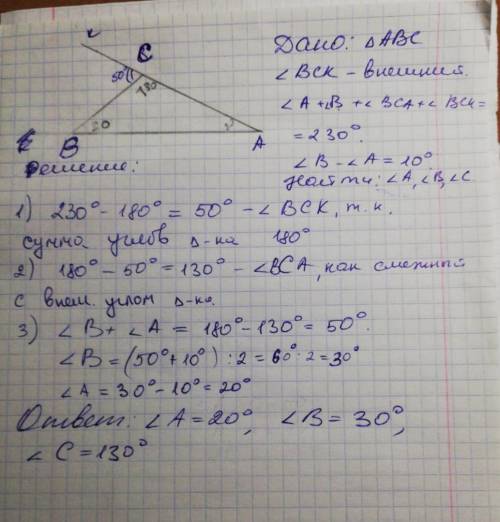 к
C
50°
130
30
B
A
Дано: △ABC
∠BCK – внешний.
∠A + ∠B + ∠BCA + ∠BCK =
= 230°.
∠B - ∠A = 10°
Найти: ∠A, ∠B, ∠C.
Решение:
1) 230° - 180° = 50° - ∠BCK, т. к.
сумма углов △-ка 180°
2) 180° - 50° = 130° - ∠BCA, как смежный
с внеш. углом △-ка.
3) ∠B + ∠A = 180° - 130° = 50°.
∠B = (50° + 10°) : 2 = 60° : 2 = 30°
∠A = 30° - 10° = 20°
Ответ: ∠A = 20°, ∠B = 30°,
∠C = 130°